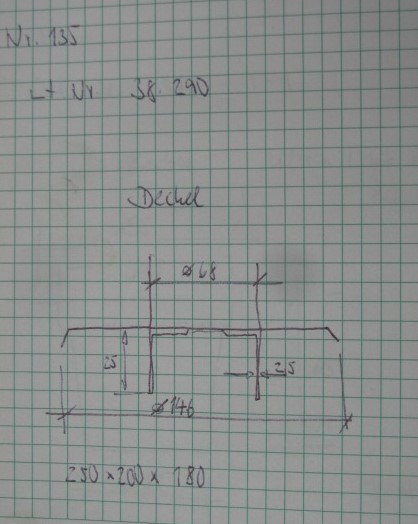 Nr. 135
Lt Nr 38.290
Deckel
ø68
25
25
ø146
250 x 200 x 180